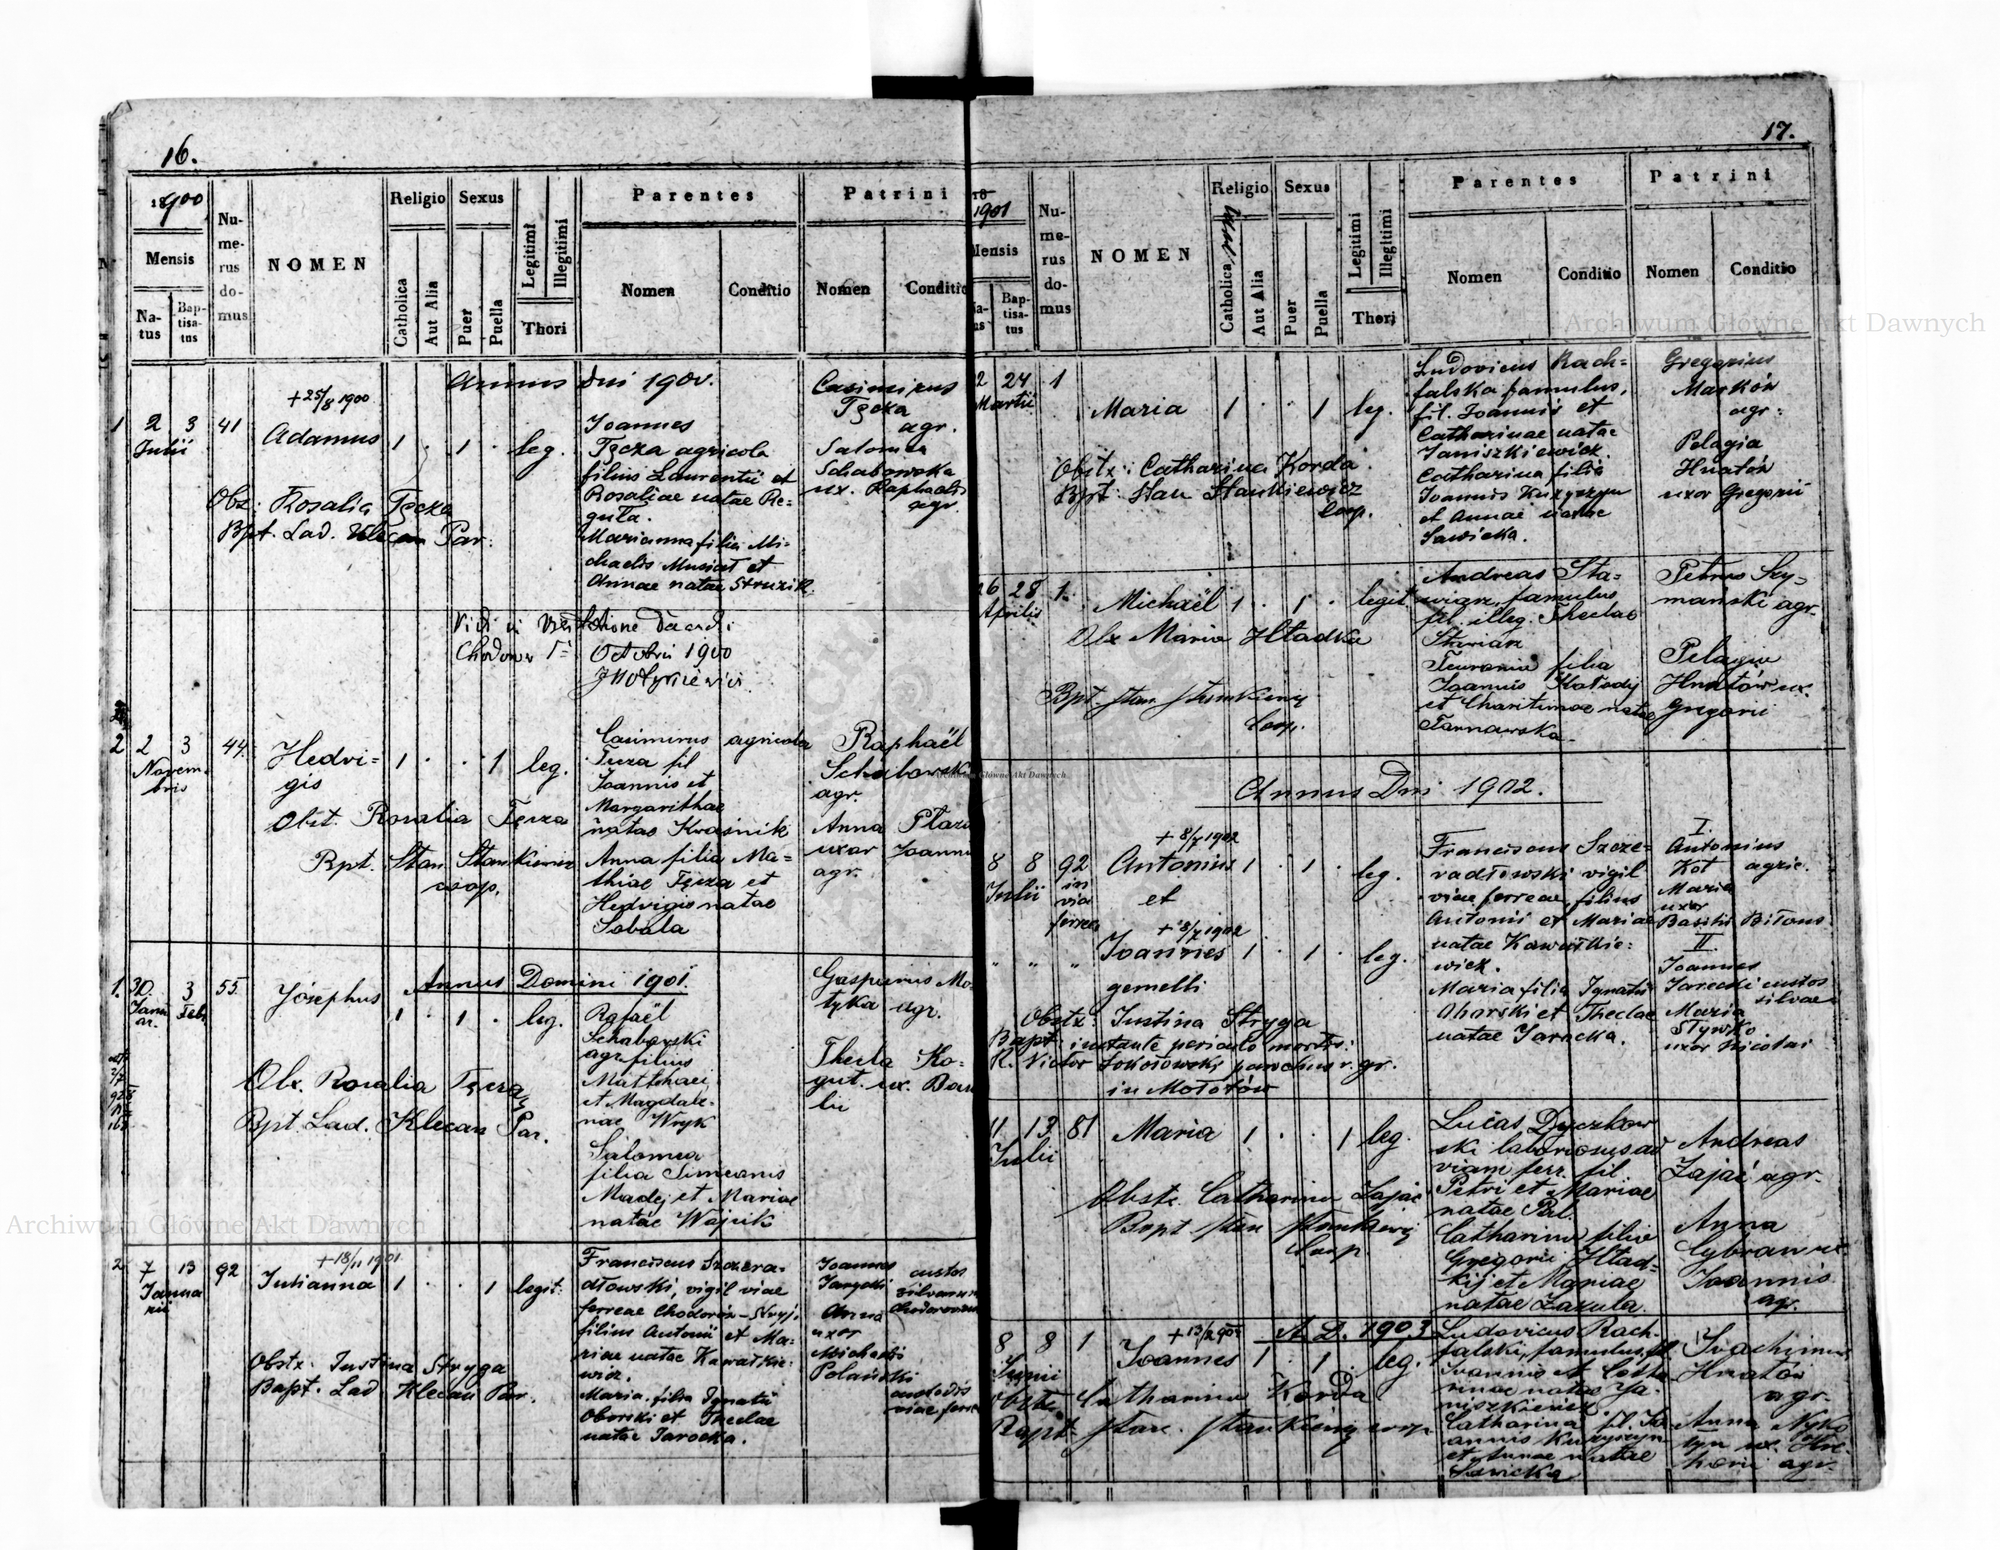 16.
1900
Mensis
Na-
tus
Bap-
tisa-
tus
Nu-
me-
rus
do-
mus
NOMEN
Religio
Catholica
Aut Alia
Sexus
Puer
Puella
Legitimi
Illegitimi
Thori
Parentes
Nomen
Conditio
Patrini
Nomen
Conditio
Annus Dni 1900.
1 2 3 41
Julii
+25/8 1900
Adamus 1 · 1 · leg.
Obs: Rosalia Tęcza
Bpt. Lad. Klecan Par.
Joannes
Tęcza agricola
filius Laurentii et
Rosaliae natae Re-
guła.
Marianna filia Mi-
chaelis Musiał et
Annae natae Struzik
Casimirus
Tęcza
agr.
Salomea
Schabowska
ux. Raphaelis
agr.
Octobris 1900
2 2 3 44.
Novem-
bris
Hedvi-
gis
1 · · 1 leg.
Obst. Rosalia Tęcza
Bpt. Stan. Stankiewicz
coop.
Casimirus agricola
Tęcza fil
Joannis et
Margarithae
natae Kraśnik
Anna filia Ma-
thiae Tęcza et
Hedvigis natae
Sobala
Raphaël
Schabowski
agr.
Anna Plaza
uxor Joannis
agr.
Annus Domini 1901.
1. 30. 3 55
Janu-
ar. Feb.
Josephus 1 · 1 · leg.
Obs. Rosalia Tęcza
Bpt. Lad. Klecan Par.
Rafaël
Schabowski
agr. filius
Matthaei
et Magdale-
nae Wryk
Salomea
filia Simeonis
Madej et Mariae
natae Wójcik
Gasparus Mo-
tyka agr.
Thecla Ko-
gut. ux. Basi-
lii
2 7 13 92
Janua-
rii
+18/11 1901
Julianna 1 · · 1 legit.
Obstx: Justina Stryga
Bapt. Lad. Klecan Par.
Franciscus Szczera-
dłowski, vigil viae
ferreae Chodorów-Stryj,
filius Antonii et Ma-
riae natae Kawałkie-
wicz.
Maria, filia Ignatii
Oborski et Theclae
natae Jarocka.
Joannes custos
Jarecki silvarum
Anna
uxor
Michaelis
Polański
custodis
viae ferreae
17.
18
1901
Mensis
Bap-
tisa-
tus
Nu-
me-
rus
do-
mus
NOMEN
Religio
Catholica
Aut Alia
Sexus
Puer
Puella
Legitimi
Illegitimi
Thori
Parentes
Nomen
Conditio
Patrini
Nomen
Conditio
2 24 1
Martii
Maria 1 · · 1 leg.
Obstx: Catharina Korda
Bpt: Stan Stankiewicz
Coop.
Ludovicus Rach-
falska famulus,
fil. Joannis et
Catharinae natae
Janiszkiewicz.
Catharina filia
Joannis Kuryczyn
et Annae natae
Sawicka.
Gregorius
Markón
agr:
Pelagia
Hnatów
uxor Gregorii
26 28 1.
Aprilis
Michaël 1 · 1 · legit.
Obs Maria Hładka
Bpt. Stan Stankiewicz
Coop.
Andreas Sta-
wiarz, famulus
fil. illeg. Theclae
Stawiarz
filia
Joannis Kołodij
et Charitinae natae
Tarnawska.
Petrus Szy-
mański agr.
Pelagia
Hnatów ux.
Gregorii
Annus Dni 1902.
8 8 92
Julii in
via
ferrea
+ 8/7 1902
Antonius 1 · 1 · leg.
et
+ 8/7 1902
" " " Joannes 1 · 1 · leg.
gemelli
Obstx: Justina Stryga
Bapt: instante periculo mortis:
R. Victor Sokołowski parochus r. gr.
in Mołotów
Franciscus Szcze-
radłowski vigil
viae ferreae, filius
Antonii et Mariae
natae Kawałkie-
wicz.
Maria filia Ignatii
Oborski et Theclae
natae Jarocka.
I.
Antonius
Kot agric.
Maria
uxor
Basilii Biłous
II
Joannes
Jarecki custos
silvae
Maria
Stywko
uxor Nicolai
11 13 81
Julii
Maria 1 · · 1 leg.
Obstx. Catharina Zając
Bapt Stan Stankiewicz
Coop
Lucas Dyczkow
ski laboriosus ad
viam ferr. fil.
Petri et Mariae
natae Pal.
Catharina filia
Gregorii Hład-
kij et Mariae
natae Zazula.
Andreas
Zając agr.
Anna
Cybran ux
Joannis
agr.
A. D. 1903
8 8 1
Junii
Joannes 1 · 1 · leg.
Obstx Catharina Korda
Bapt. Stan. Stankiewicz coop.
Ludovicus Rach-
falski, famulus, fil.
Joannis et Catha
rinae natae Ja-
niszkiewicz
Catharina fil. Jo-
annis Kuryczyn
et Annae natae
Sawicka
Joachimus
Hnatów
agr.
Anna
Archiwum Główne Akt Dawnych
Archiwum Główne Akt Dawnych
Archiwum Główne Akt Dawnych